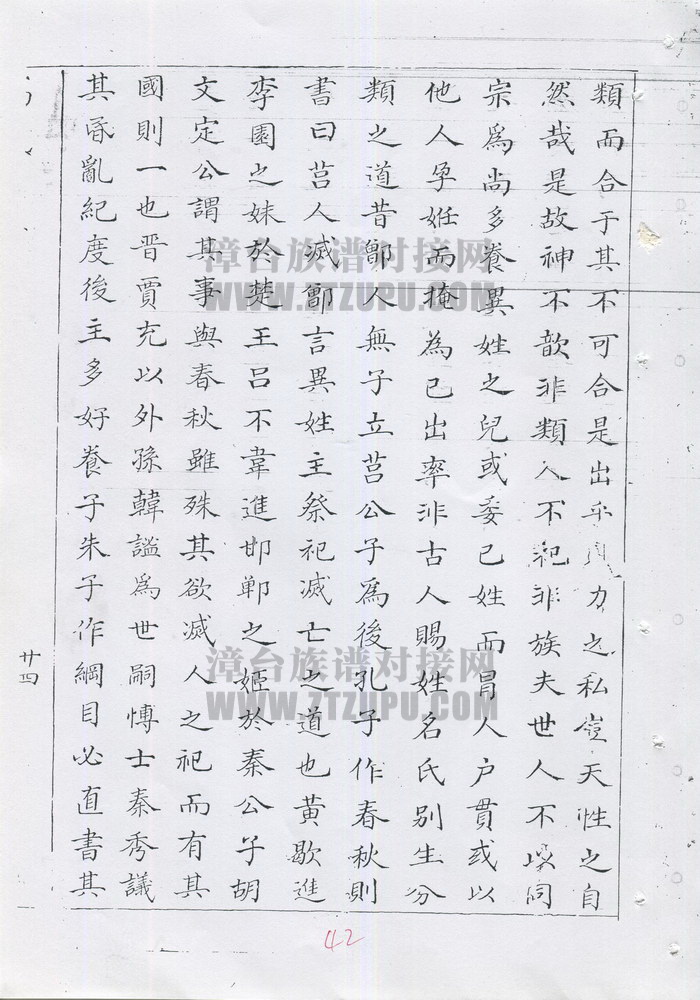 類而合于其不可合是出乎力之私豈天性之自
然哉是故神不歆非類人不祀非族夫世人不同
宗為尚多養異姓之兒或委已姓而冒人户貫或以
他人孕姙而掩為已出率非古人賜姓名氏別生分
類之道昔鄫人無子立莒公子為後孔子作春秋則
書曰莒人滅鄫言異姓主祭祀滅亡之道也黃歇進
李園之妹於楚王呂不韋進邯鄲之姬於秦公子胡
文定公謂其事與春秋雖殊其欲滅人之祀而有其
國則一也晋賈充以外孫韓謐為世嗣愽士秦秀議
其昏亂紀度後主多好養子朱子作綱目必直書其
廿四
42
漳台族谱对接网
WWW.ZTZUPU.COM
漳台族谱对接网
WWW.ZTZUPU.COM